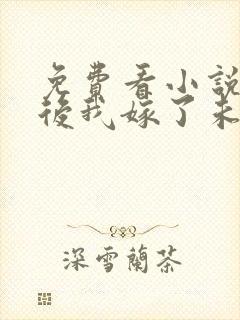 免費看小說
後我嫁了未
深雪蘭茶